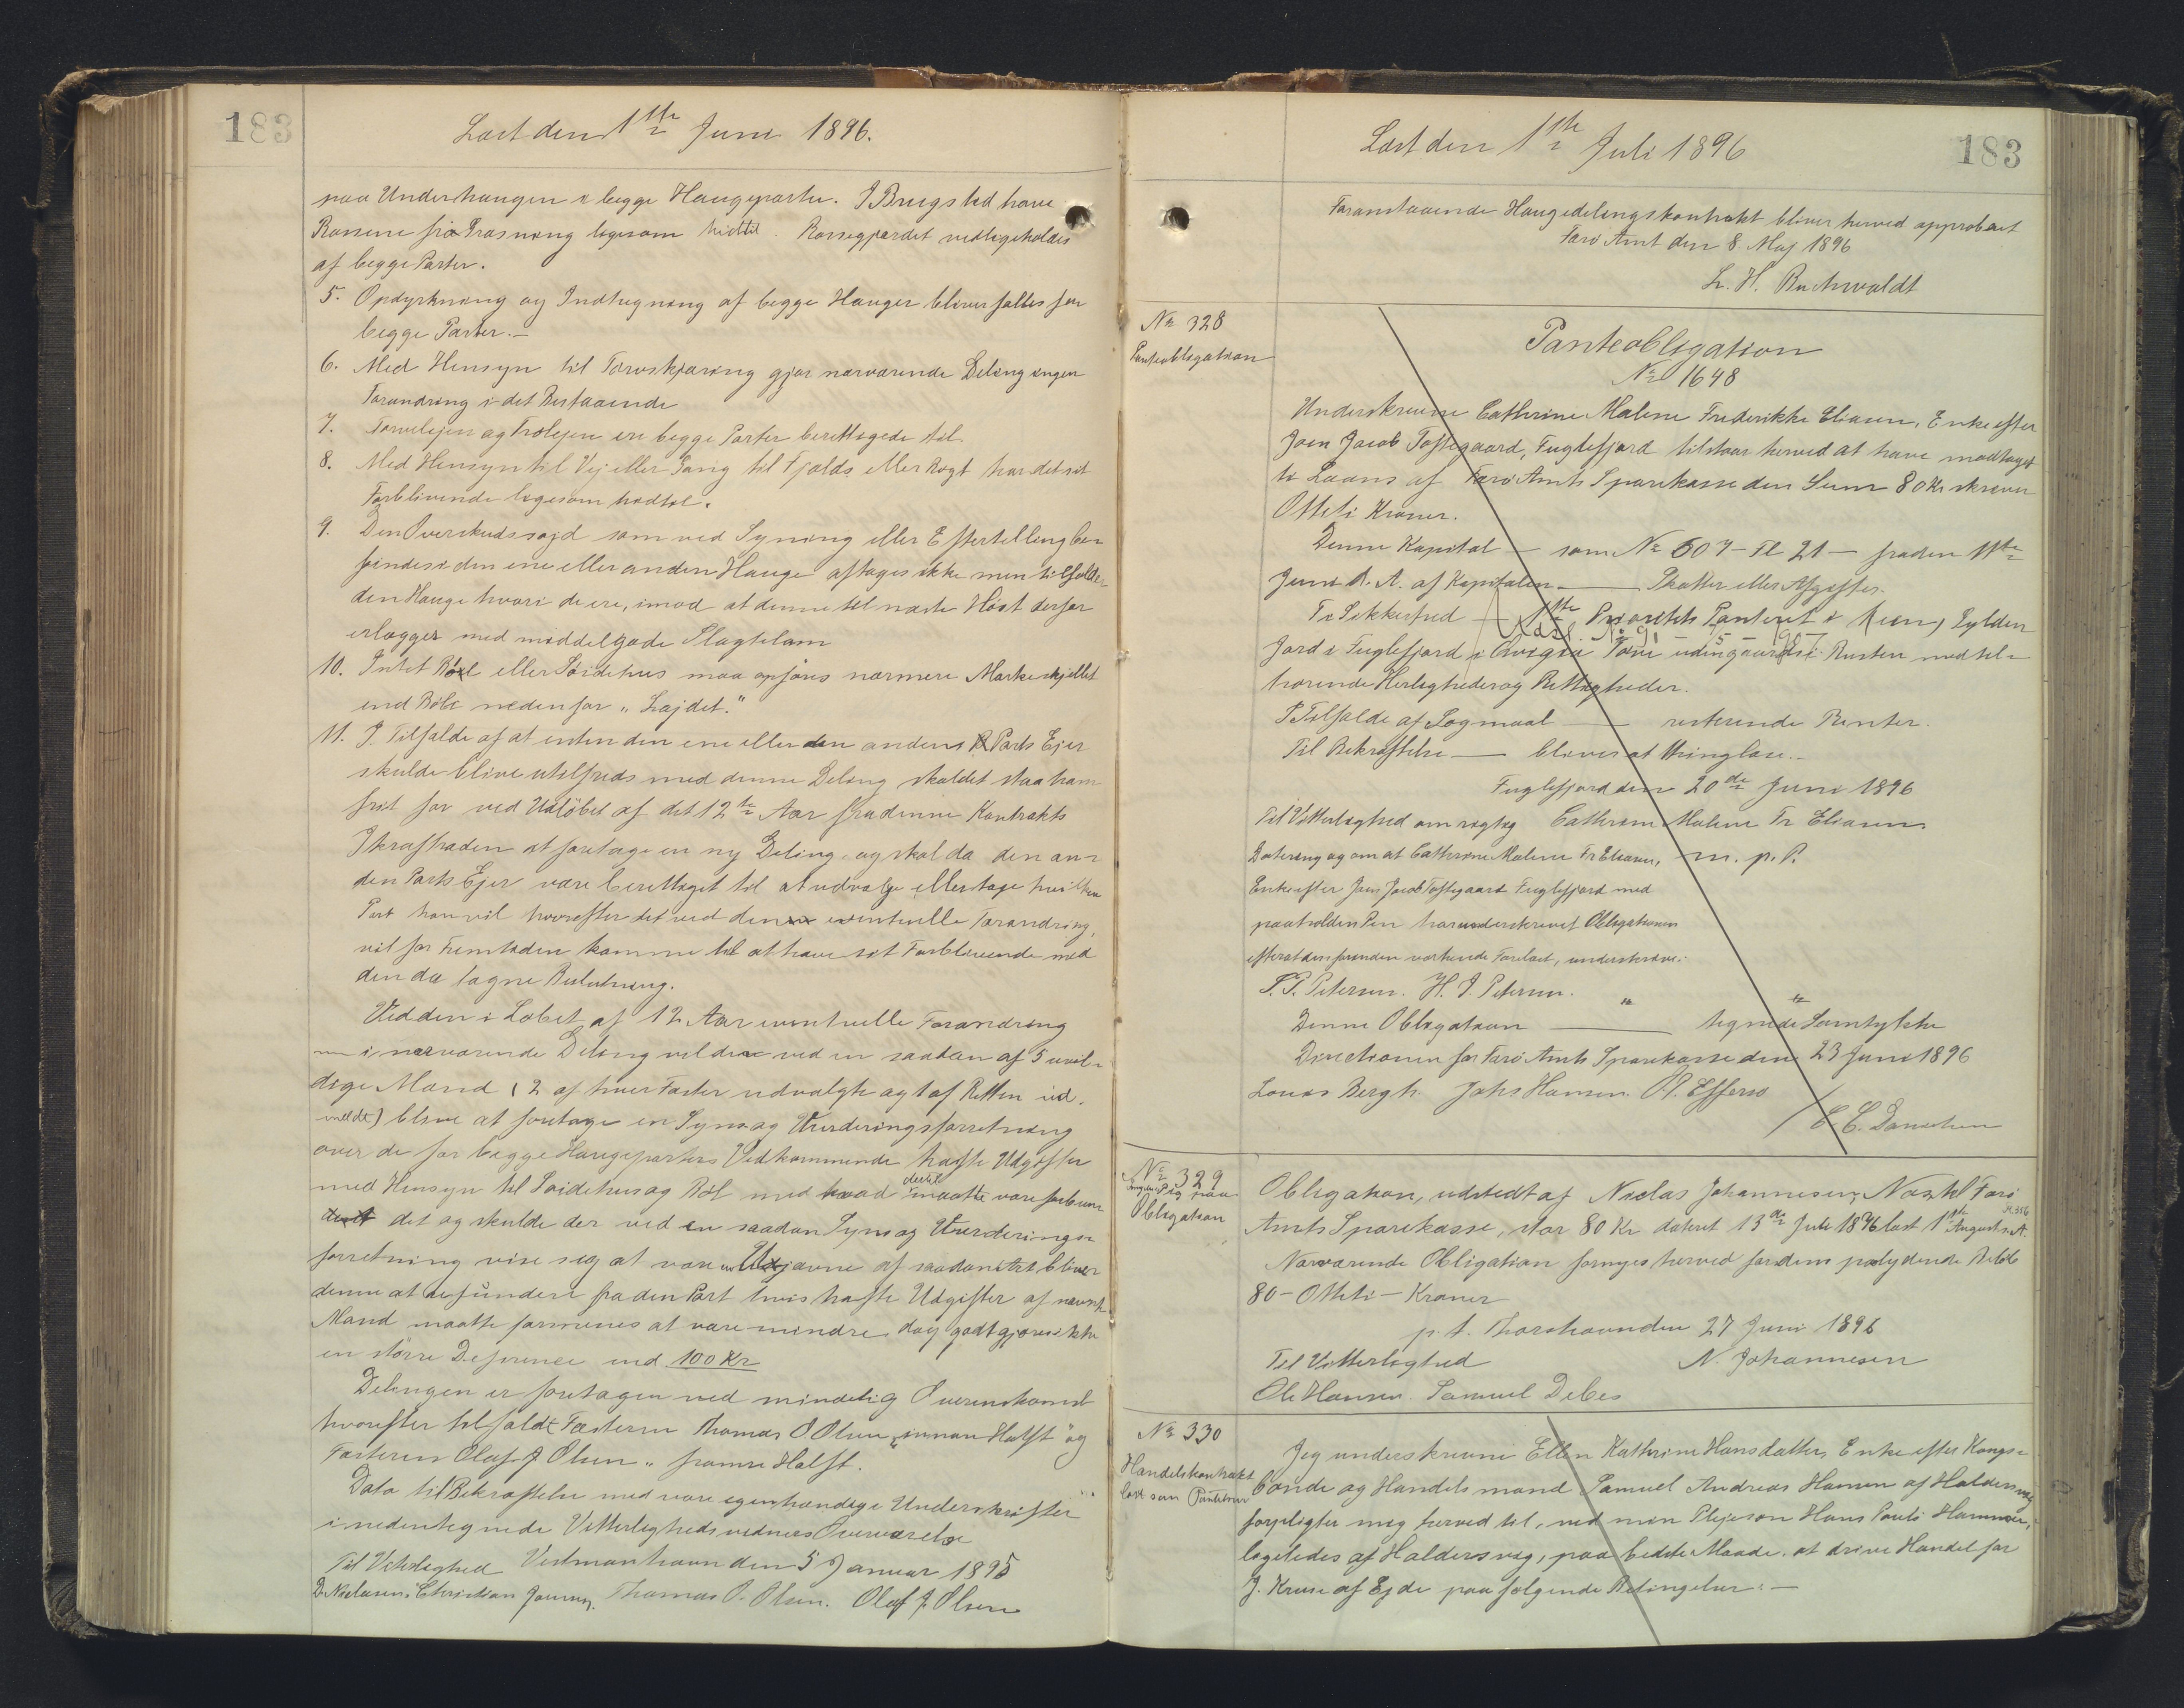 183
Læst den 1ste Juni 1896.
paa Underhaugen i begge Haugeparter. I Brugstid have
Rossene fri Græsning ligesom hidtil. Rossegjærdet vedligeholdes
af begge Parter.
5. Opdyrkning og Indhegning af begge Hauger bliver fælles for
begge Parter.–
6. Med Hensyn til Tørvskjæring gjør nærværende Deling ingen
Forandring i det Bestaaende
7. Tørvelejen og Trælejen ere begge Parter berettigede til.
8. Med Hensyn til Vej eller Gang til Fjælds eller Rogt har det sit
Forblivende ligesom hidtil.
9. Den Overskudssojd som ved Syning eller Eftertælling be-
findes i den ene eller anden Hauge aftages ikke men tilfalder
den Hauge hvori de ere, imod at denne til næste Høst derfor
erlægger med middelgode Slagtelam
10. Intet Ból eller Soidehus maa opføres nærmere Markeskjellet
end Bóle nedenfor „Lajdet."
11. I Tilfælde af at enten den ene eller den andens Parts Ejer
skulde blive utilfreds med denne Deling skal det staa ham
frit for ved Udløbet af det 12te Aar fra denne Kontrakts
Ikrafttræden at foretage en ny Deling, og skal da den an-
den Parts Ejer være berettiget til at udvælge eller tage hvilken
Part han vil hvorefter det ved den eventuelle Forandring,
vil for Fremtiden komme til at have sit Forblivende med
den da tagne Beslutning.
Ved den i Løbet af 12 Aar eventuelle Forandring
i nærværende Deling vil der ved en saadan af 5 uvil-
dige Mænd (2 af hver Fæster udvalgte og 1 af Retten ud-
meldt) blive at foretage en Syns og Vurderingsforretning
over de for begge Haugeparters Vedkommende hafte Udgifter
med Hensyn til Soidehus og Ból med hvad dertil maatte være forbun
det og skulde der ved en saadan Syns og Vurderings-
forretning vise sig at være Ujævne af saadan Art bliver
denne at refundere fra den Part hvis hafte Udgifter af nævnte
Mænd maatte formenes at være mindre, dog godtgjøres ikke
en større Deference end 100 Kr
Delingen er foretagen ved mindelig Overenskomst
hvorefter tilfaldt Fæsteren Thomas O. Olsen „innan Halft" og
Fæsteren Olaf J Olsen „framre Halft.
Dato til Bekræftelse med vore egenhændige Underskrifter
i nedentegnede Vitterlighedsvidners Overværelse
Til Vitterlighed Vestmanhavn den 5 Januar 1895
D. Niclasen. Christian Joensen. Thomas O. Olsen. Olaf J. Olsen
Læst den 1ste Juli 1896
183
Foranstaaende Haugedelingskontrakt bliver herved approberet
Færø Amt den 8 Maj 1896
L. H. Buchwaldt
No 328
Panteobligation
Panteobligation
No 1648
Underskrevne Cathrine Malene Frederikke Eliasen, Enke efter
Joen Jacob Toftegaard, Fuglefjord tilstaar herved at have modtaget
til Laans af Færø Amts Sparekasse den Sum 80 Kr skriver
Otteti Kroner.
Denne Kapital – som No 607 – Fl 21 – fra den 11te
Juni d. A. af Kapitalen – Skatter eller Afgifter.
Til Sikkerhed – 1ste Prioritets Panteret i Gylden
Jord i Fuglefjord i med til-
hørende Herligheder og Rettigheder.
I Tilfælde af Søgmaal – resterende Renter.
Til Bekræftelse – bliver at thinglæse.–
Fuglefjord den 20de Juni 1896
Til Vitterlighed om rigtig Cathrine Malene Fr Eliasen
Datering og om at Cathrine Malene Fr Eliasen, m. p. P.
Enke efter Joen Jacob Toftegaard Fuglefjord med
paaholden Pen har underskrevet Obligationen
efterat den forinden var hende Forelæst, underskrive.
P. P. Petersen. H. J. Petersen.
Denne Obligation – tegnede Samtykke
Directionen for Færø Amts Sparekasse den 23 Juni 1896
Louis Bergh. Johs Hansen. A. Effersø
/ C. C. Danielsen
No 329
paa
Obligation
Obligation, udstedt af Niclas Johannesen, til Færø
Amts Sparekasse, stor 80 Kr dateret 13de Juli 1896 læst 1ste August s. A.
Nærværende Obligation fornyes herved for dens paalydende Beløb
80 – Otteti – Kroner
p. t. Thorshavn den 27 Juni 1896
Til Vitterlighed N. Johannesen
Ole Hansen. Samuel Debes
No 330
Handelskontrakt
læst som Pantebrev
Jeg underskrevne Ellen Kathrine Hansdatter, Enke efter Kongs-
bonde og Handelsmand Samuel Andreas Hansen af Haldersvig
forpligter mig herved til, ved min Plejesøn Hans Pauli Hammer,
ligeledes af Haldersvig, paa bedste Maade, at drive Handel for
J. Kruse af Ejde paa følgende Betingelser:–